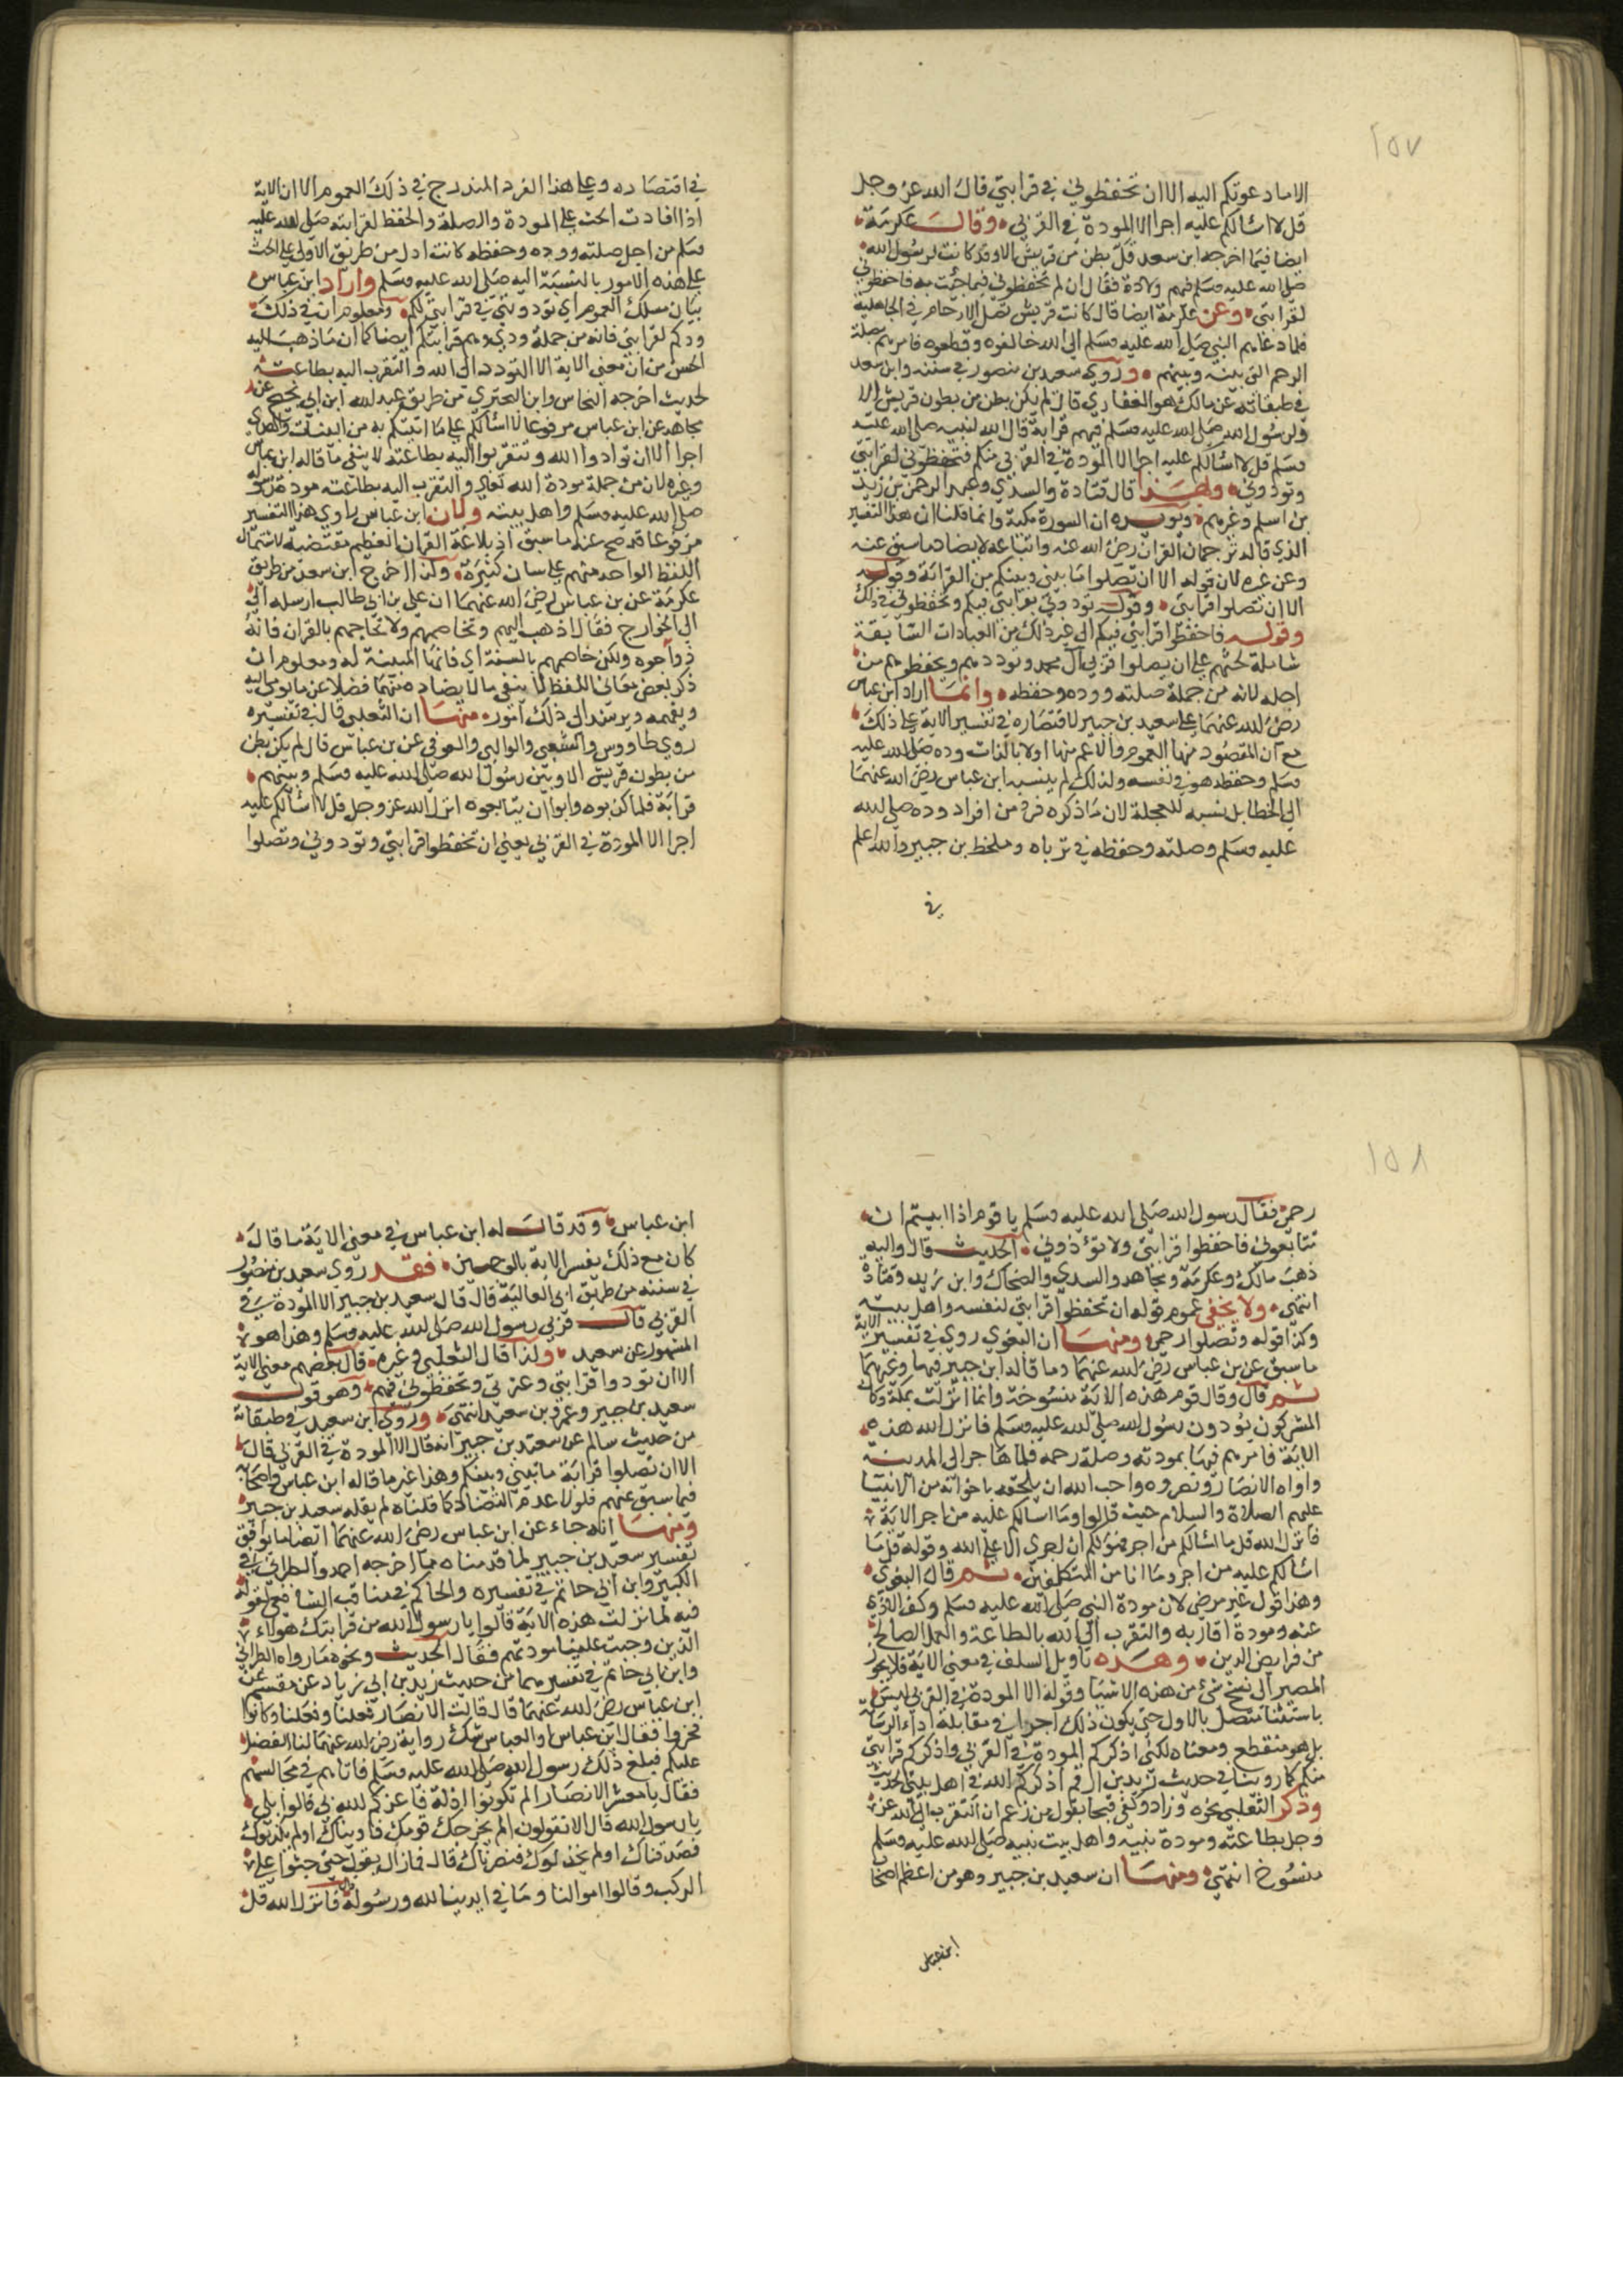 ١٥٧
الاما دعوتكم اليه الا ان تحفظوني في قرابتي قال الله عز وجل
قل لا اسئالكم عليه اجرا الا المودة في القربي وقالت عكرمة
ايضا فيما اخرجه ابن سعد قل بطن من قريش الا وقد كانت لرسول الله
صلى الله عليه وسلم فيهم ولادة فقال ان لم تحفظوني فيما جئت به فاحفظوني
لقرابتي وعن عكرمة ايضا قال كانت قريش تصل الارحام في الجاهلية
فلما دعاهم النبي صلى الله عليه وسلم الى الله خالفوه وقطعوه فامرهم بصلة
الرحم التي بينه وبينهم وروي سعيد بن منصور في سننه وابن سعد
في طبقاته عن مالك هو الغفاري قال لم يكن بطن من بطون قريش الا
ولرسول الله صلى الله عليه وسلم فيهم قرابة قال الله لنبيه صلى الله عليه
وسلم قل لا اسئالكم عليه اجرا الا المودة في القربي منكم فتحفظوني لقرابتي
وتودوني ولهذا قال قتادة والسدي وعبد الرحمن بن زيد
بن اسلم وغيرهم ويؤيده ان السورة مكية وانما قلنا ان هذا التفسير
الذي قاله ترجمان القران رضي الله عنه واتباعه لا يضاد ما سبق عنه
وعن غيره لان قوله الا ان تصلوا ما بيني وبينكم من القرابة وقوله
الا ان تصلوا قرابتي وقوله تودوني بقرابتي فيكم وتحفظوني في ذلك
وقوله فاحفظوا قرابتي فيكم الى غير ذلك من العبادات السابقة
شاملة لحثهم على ان يصلوا قربي آل محمد وتوددهم ويحفظوهم من
اجله لانه من جملة صلته ووده وحفظه وانما اراد ابن عباس
رضي الله عنهما على سعيد بن جبير لاقتصاره في تفسير الاية على ذلك
مع ان المقصود منها العموم والاعم منها اولا بالذات وده صلى الله عليه
وسلم وحفظه هو في نفسه ولذلك لم ينسبه ابن عباس رضي الله عنهما
الى الخطا بل نسبه للعجلة لان ما ذكره فرد من افراد وده صلى الله
عليه وسلم وصلته وحفظه في قرباه وملحظ بن جبير والله اعلم
في
في اقتصاره وعلى هذا الفرد المندرج في ذلك العموم الا ان الاية
اذا افادت الحث على المودة والصلة والحفظ لقرابته صلى الله عليه
وسلم من اجل صلته ووده وحفظه كانت ادل من طريق الاولى على الحث
على هذه الامور بالنسبة اليه صلى الله عليه وسلم واراد ابن عباس
بيان مسلك العموم اي تودوني في قرابتي لكم ومعلوم ان في ذلك
ودكم لقرابتي فانه من جملة ودي وهم قرابتكم ايضا كما ان ما ذهب اليه
الحسن من ان معنى الاية الا التودد الى الله والتقرب اليه بطاعته
لحديث اخرجه النحاس وابن البحتري من طريق عبد الله ابن ابي نجيح عن
مجاهد عن ابن عباس مرفوعا لا اسئالكم على ما اتيتكم به من البينات والهدى
اجرا الا ان توادوا الله وتتقربوا اليه بطاعته لا ينفي ما قاله ابن عباس
وغيره لان من جملة مودة الله تعالى والتقرب اليه بطاعته مودة رسوله
صلى الله عليه وسلم واهل بيته ولان ابن عباس راوي هذا التفسير
مرفوعا قد صح عنه ما سبق اذ بلاغة القران العظيم مقتضية لاشتمال
اللفظ الواحد منه على معان كثيرة ولذا اخرج ابن سعد من طريق
عكرمة عن بن عباس رضي الله عنهما ان علي بن ابي طالب ارسله الى
الى الخوارج فقال اذهب اليهم وتخاصمهم ولا تحاججهم بالقران فانه
ذو وجوه ولكن خاصمهم بالسنة اي فانها المبينة له ومعلوم ان
ذكر بعض معاني اللفظ لا ينفي ما لا يضاده منها فضلا عن ما يومي اليه
ويفهمه ويرشد الى ذلك امور منها ان الثعلبي قال في تفسيره
روي طاووس والشعبي والوالبي والعوفي عن بن عباس قال لم يكن بطن
من بطون قريش الا وبين رسول الله صلى الله عليه وسلم وبينهم
قرابة فلما كذبوه وابوا ان يتابعوه انزل الله عز وجل قل لا اسئالكم عليه
اجرا الا المودة في القربي يعني ان تحفظوا قرابتي وتودوني وتصلوا
١٥٨
رحمي فقال رسول الله صلى الله عليه وسلم يا قوم اذا ابيتم ان
تتابعوني فاحفظوا قرابتي ولا تؤذوني الحديث قال واليه
ذهب مالك وعكرمة ومجاهد والسدي والضحاك وابن زيد وقتادة
انتهي ولا يخفى عموم قوله ان تحفظوا قرابتي لنفسه واهل بيته
وكذا قوله وتصلوا رحمي ومنها ان البغوي روي في تفسير الاية
ما سبق عن بن عباس رضي الله عنهما وما قاله ابن جبير فيها وغيرهما
ثم قال وقال قوم هذه الاية منسوخة وانما انزلت بمكة وكان
المشركون يؤدون رسول الله صلى الله عليه وسلم فانزل الله هذه
الاية فامرهم فيها بمودته وصلة رحمه فلما هاجر الى المدينة
واواه الانصار ونصروه واحب الله ان يلحقه باخوانه من الانبيا
عليهم الصلاة والسلام حيث قالوا وما اسالكم عليه من اجر الاية
فانزل الله قل ما اسئالكم من اجر فهو لكم ان اجري الا على الله وقوله قل ما
اسئالكم عليه من اجر وما انا من المتكلفين ثم قال البغوي
وهذا قول غير مرضي لان مودة النبي صلى الله عليه وسلم وكف الاذي
عنه ومودة اقاربه والتقرب الى الله بالطاعة والعمل الصالح
من فرايض الدين وهذه تاويل السلف في معنى الاية فلا يجوز
المصير الى نسخ شئ من هذه الاشيا وقوله الا المودة في القربي ليس
باستثنا متصل بالاول حتى يكون ذلك اجرا في مقابلة اداء الرسالة
بل هو منقطع ومعناه لكني اذكركم المودة في القربي واذكركم قرابتي
منكم كما روينا في حديث زيد بن ارقم اذكركم الله في اهل بيتي الحديث
وذكر الثعلبي نحوه وزاد وكفي قبحا بقول من زعم ان التقرب الى الله عز
وجل بطاعته ومودة نبيه واهل بيت نبيه صلى الله عليه وسلم
منسوخ انتهي ومنها ان سعيد بن جبير وهو من اعظم اصحاب
ابن عباس
ابن عباس وقد قال له ابن عباس في معنى الاية ما قال
كان مع ذلك يفسر الاية بالوجهين فقد روي سعيد بن منصور
في سننه من طريق ابي العالية قال قال سعيد بن جبير الا المودة في
القربي قال قربي رسول الله صلى الله عليه وسلم وهذا هو
المشهور عن سعيد ولذا قال الثعلبي وغيره قال بعضهم معنى الاية
الا ان تودوا قرابتي وعترتي وتحفظوني فيهم وهو قول
سعيد بن جبير وعمرو بن سعيد انتهي وروي ابن سعد في طبقاته
من حديث سالم عن سعيد بن جبير انه قال الا المودة في القربي قال
الا ان تصلوا قرابة ما بيني وبينكم وهذا غير ما قاله ابن عباس واصحابه
فيما سبق عنهم فلولا عدم التضاد كما قلناه لم يقله سعيد بن جبير
ومنها انه جاء عن ابن عباس رضي الله عنهما ايضا ما يوافق
تفسير سعيد بن جبير لما قدمناه مما اخرجه احمد والطبراني في
الكبير وابن ابي حاتم في تفسيره والحاكم في مناقب الشافعي لقوله
فيه لما نزلت هذه الاية قالوا يا رسول الله من قرابتك هؤلاء
الذين وجبت علينا مودتهم فقال الحديث ونحوه ما رواه الطبراني
وابن ابي حاتم في تفسيرهما من حديث يزيد بن ابي زياد عن مقسم عن
ابن عباس رضي الله عنهما قال قالت الانصار فعلنا وفعلنا وكانوا
فخروا فقال ابن عباس او العباس شك رواية رضي الله عنهما لنا الفضل
عليكم فبلغ ذلك رسول الله صلى الله عليه وسلم فاتاهم في مجالسهم
فقال يا معشر الانصار الم تكونوا اذلة فاعزكم الله بي قالوا بلي
يا رسول الله قال الا تقولون الم يخرجك قومك فاويناك اولم يكذبوك
فصدقناك اولم يخذلوك فنصرناك قال فما زال يقول حتى جثوا على
الركب وقالوا اموالنا وما في ايدينا لله ورسوله قال فانزل الله قل